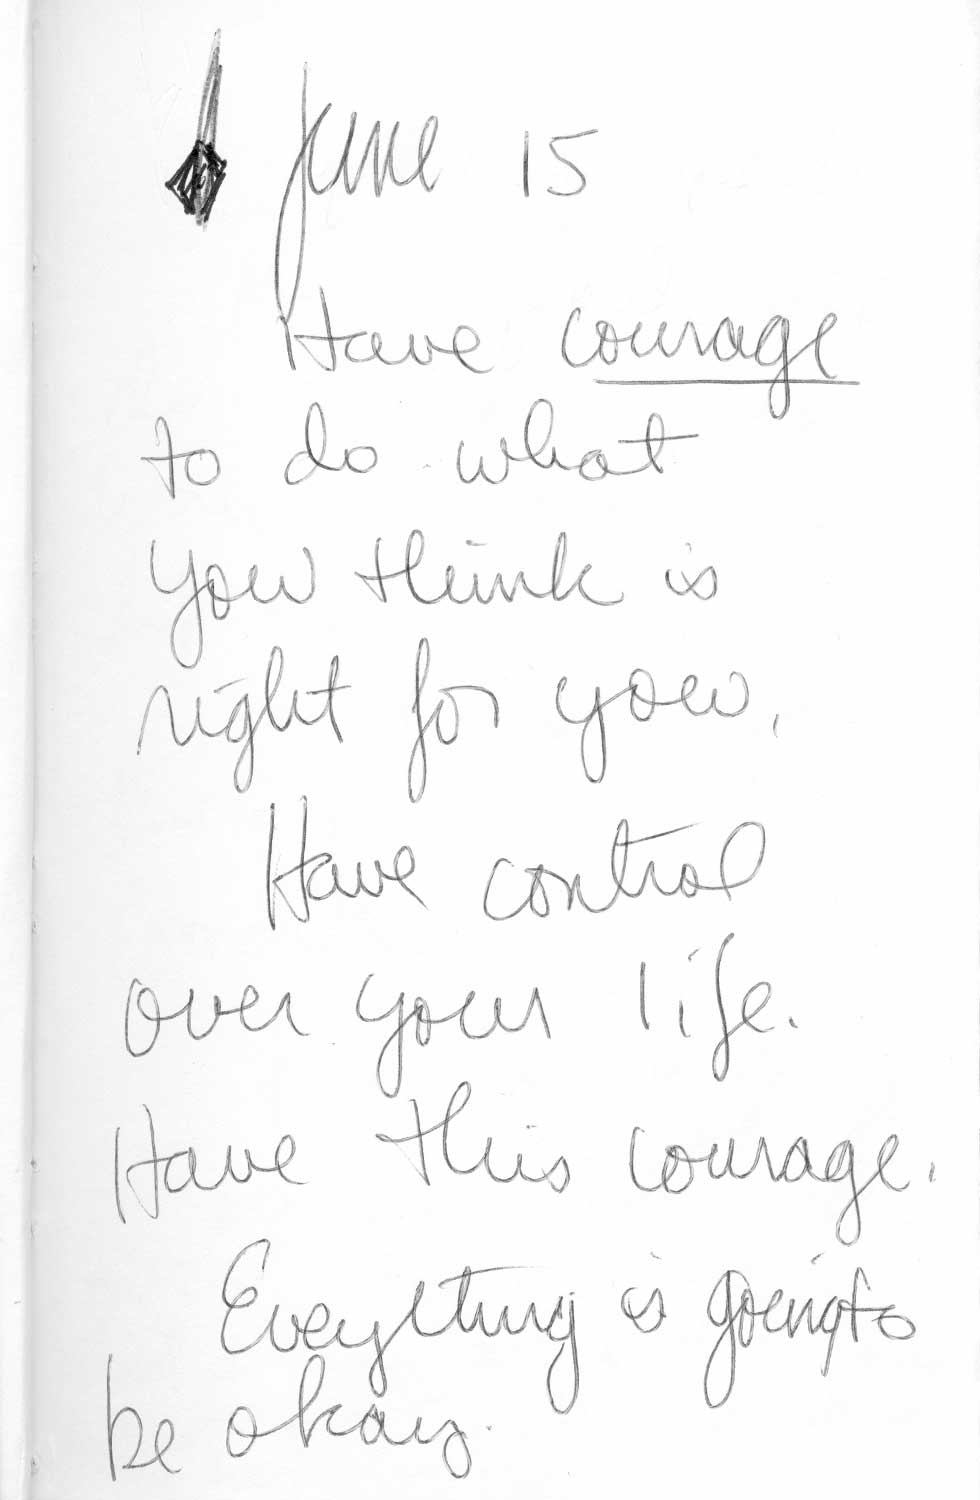 June 15
Have courage
to do what
you think is
right for you.
Have control
over your life.
Have this courage.
Everything is going to
be okay.